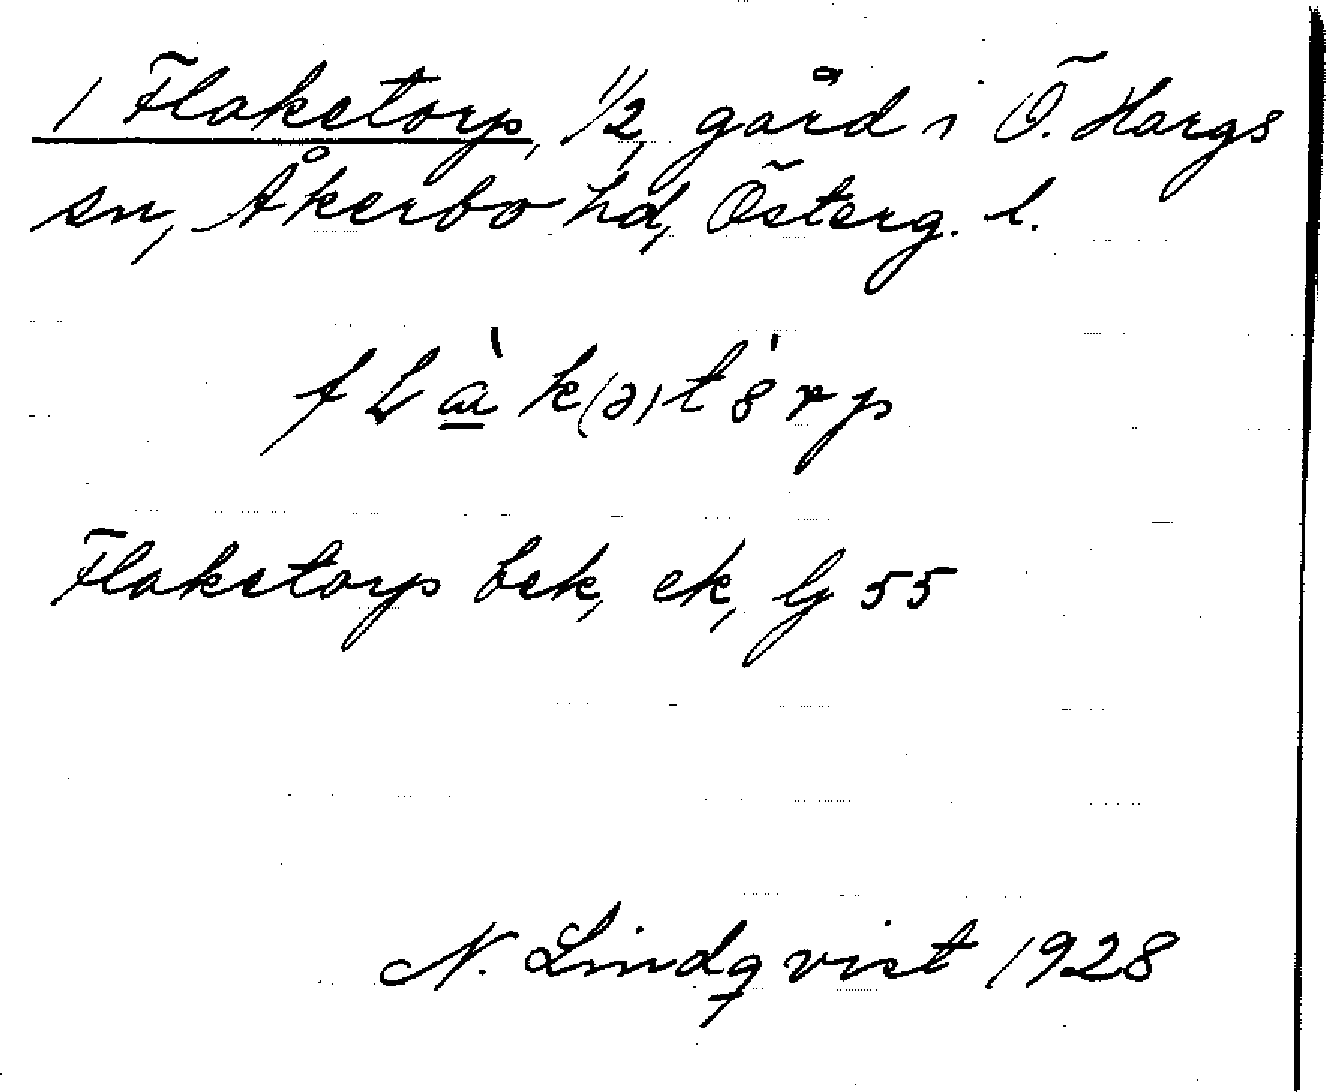 1 Flaketorp, 1/2, gård i Ö. Hargs
sn, Åkerbo hd, Österg. l.
fLà̱k(ə)tȯrp
Flaketorp bek, ek, Gj 55
N. Lindqvist 1928